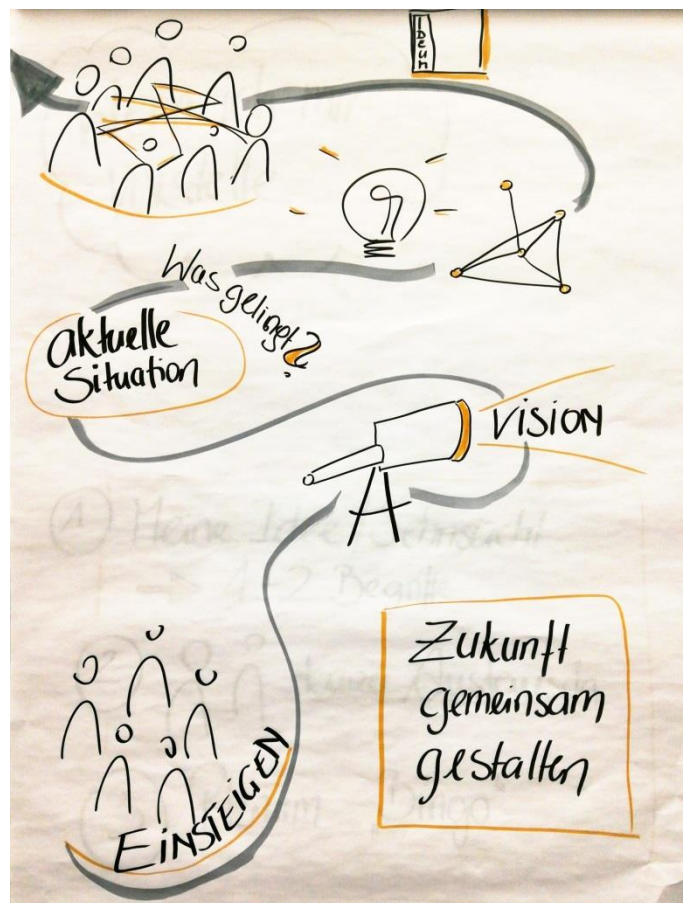 Was gelingt?
aktuelle
Situation
VISION
Zukunft
gemeinsam
gestalten
EINSTEIGEN